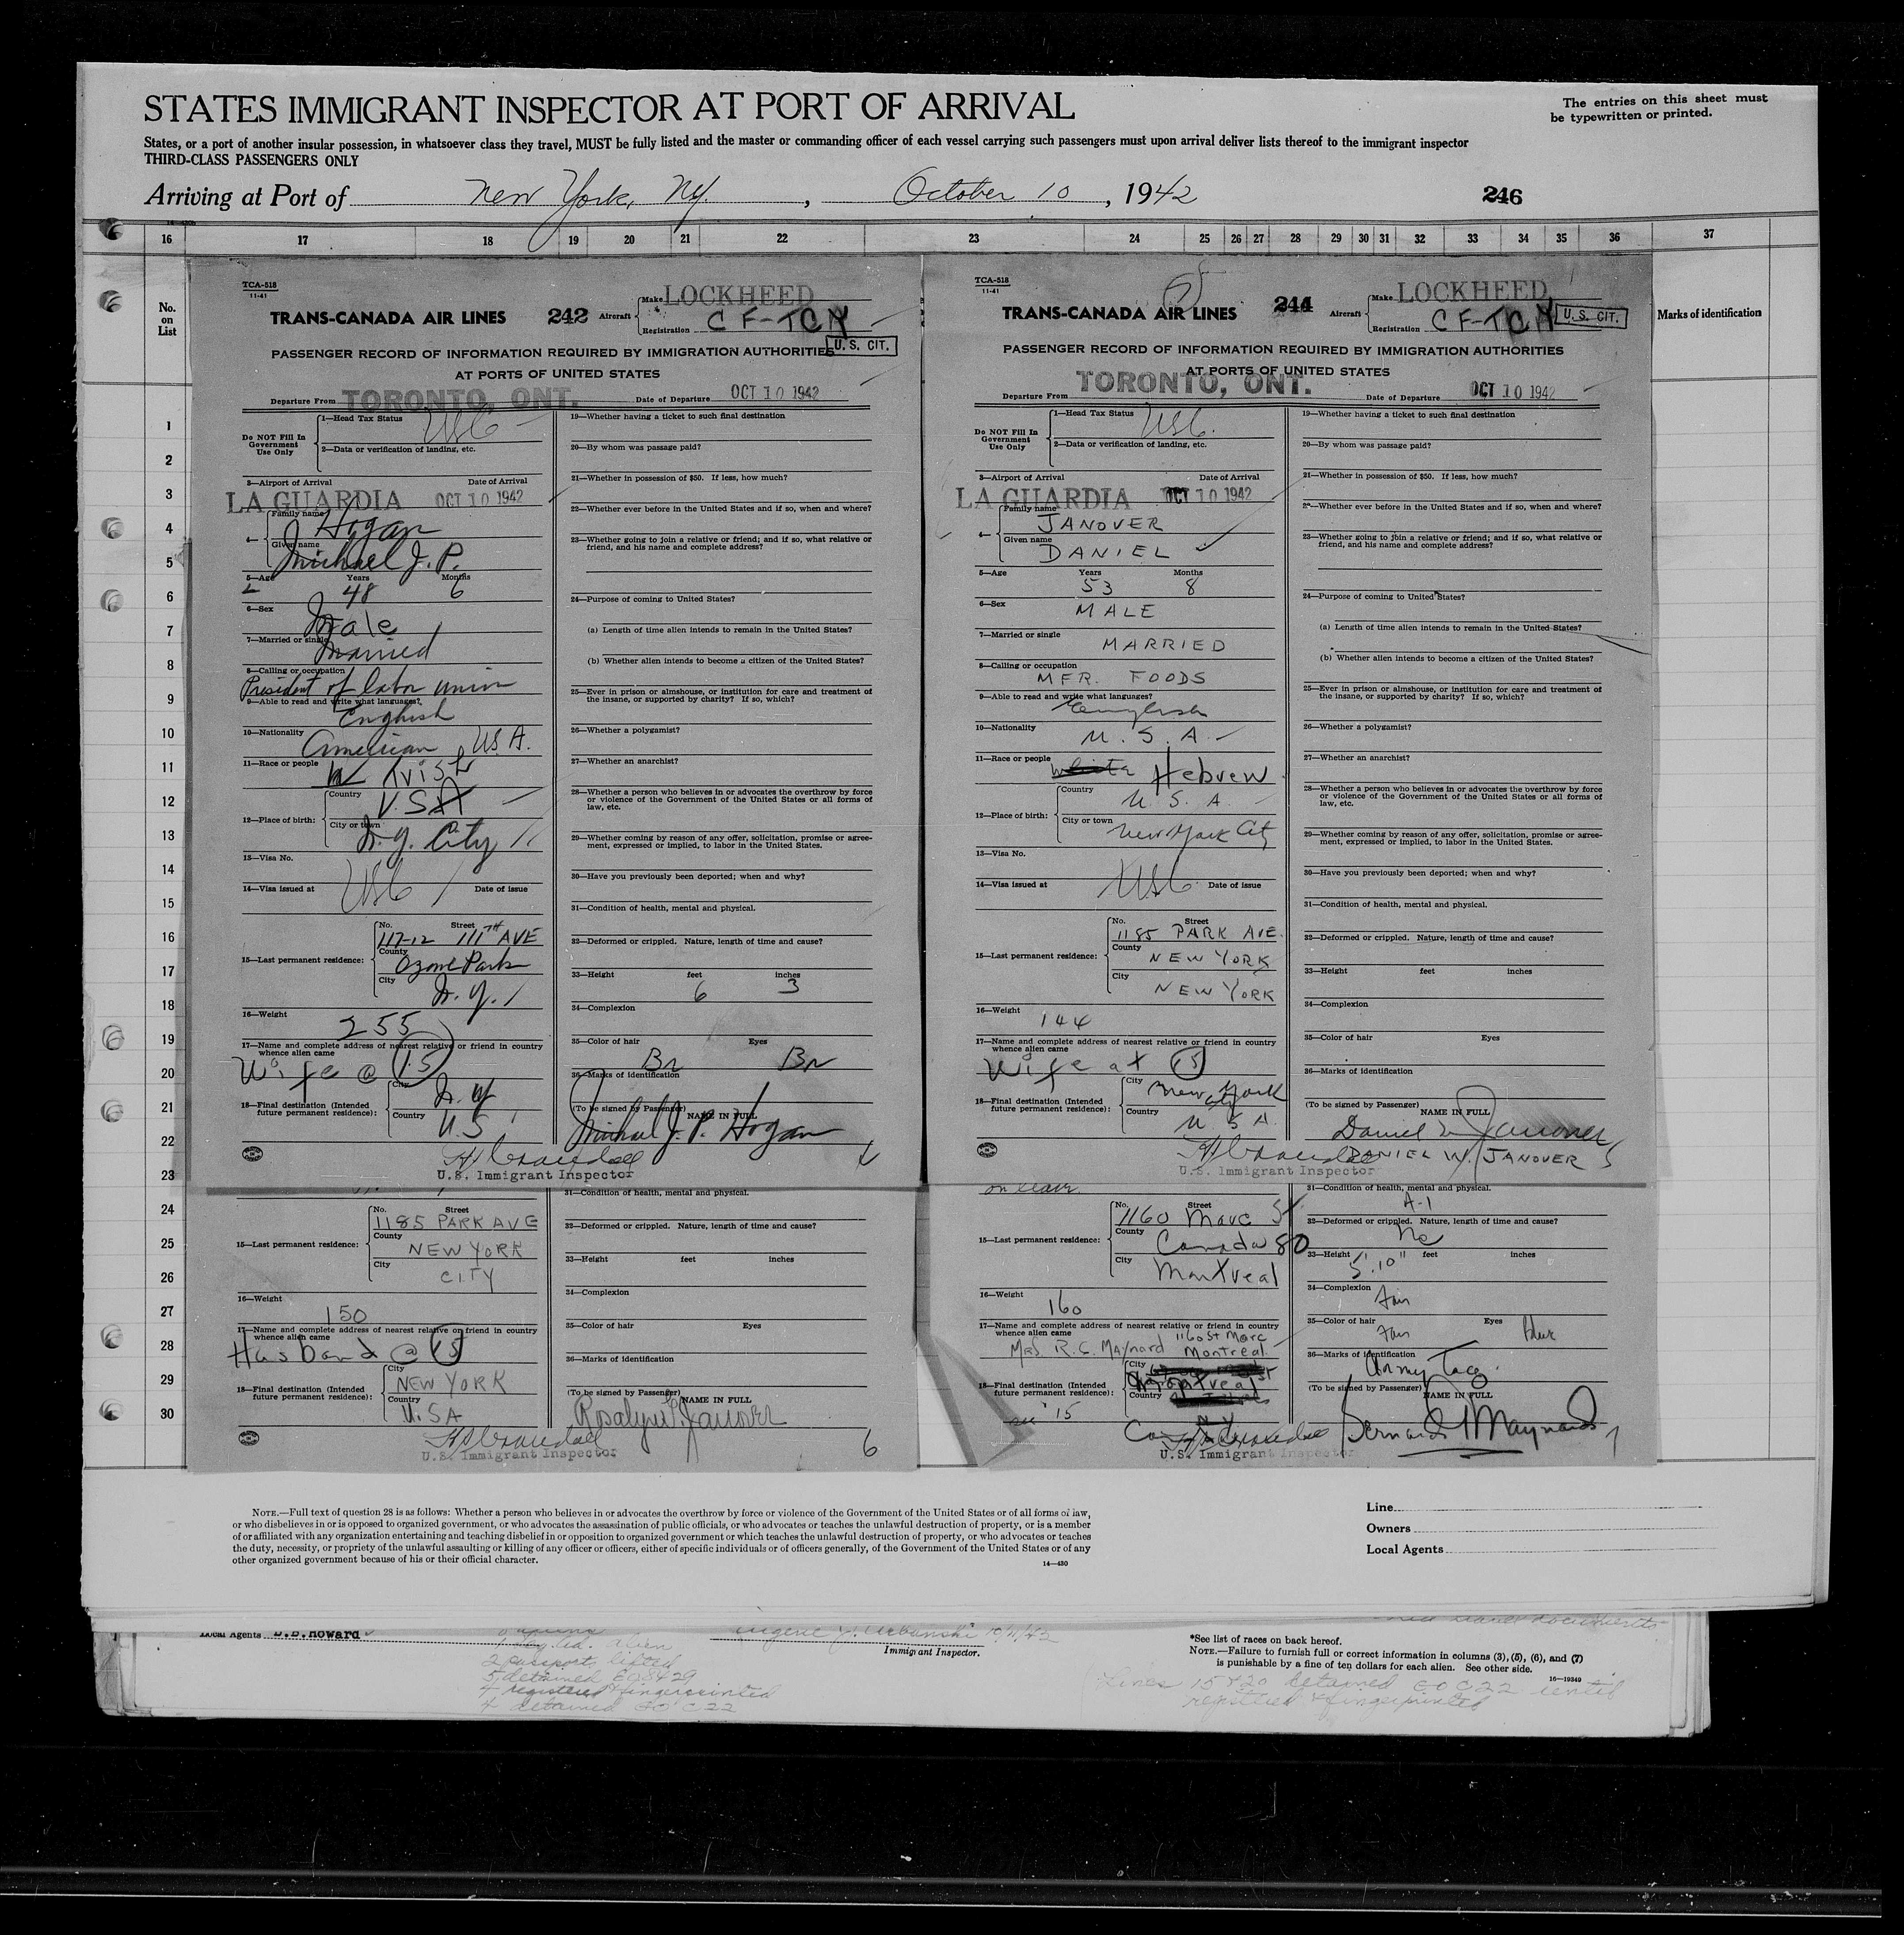 STATES IMMIGRANT INSPECTOR AT PORT OF ARRIVAL
The entries on this sheet must
be typewritten or printed.
States, or a port of another insular possession, in whatsoever class they travel, MUST be fully listed and the master or commanding officer of each vessel carrying such passengers must upon arrival deliver lists thereof to the immigrant inspector
THIRD-CLASS PASSENGERS ONLY
Arriving at Port of New York, NY. , October 10, 1942
246
16 17 18 19 20 21 22 23 24 25 26 27 28 29 30 31 32 33 34 35 36 37
No.
on
List
Marks of identification
1
2
3
4
5
6
7
8
9
10
11
12
13
14
15
16
17
18
19
20
21
22
23
24
25
26
27
28
29
30
TCA-518
11-41
TRANS-CANADA AIR LINES 242 Aircraft
Make LOCKHEED
Registration CF-TCY
U. S. CIT.
PASSENGER RECORD OF INFORMATION REQUIRED BY IMMIGRATION AUTHORITIES
AT PORTS OF UNITED STATES
Departure From TORONTO, ONT. Date of Departure OCT 10 1942
Do NOT Fill In
Government
Use Only
1—Head Tax Status USC
2—Data or verification of landing, etc.
3—Airport of Arrival Date of Arrival
LA GUARDIA OCT 10 1942
4— Family name Hogan
Given name Michael J. P.
5—Age Years Months
48 6
6—Sex Male
7—Married or single Married
8—Calling or occupation
President of labor union
9—Able to read and write what languages?
English
10—Nationality American U.S.A.
11—Race or people Irish
12—Place of birth: Country U.S.A
City or town N.Y. City
13—Visa No.
14—Visa issued at USC Date of issue
15—Last permanent residence: No. Street
117-12 111TH AVE
County Ozone Park
City N.Y.
16—Weight 255
17—Name and complete address of nearest relative or friend in country
whence alien came
Wife @ 15
18—Final destination (Intended
future permanent residence):
City N.Y
Country U.S
19—Whether having a ticket to such final destination
20—By whom was passage paid?
21—Whether in possession of $50. If less, how much?
22—Whether ever before in the United States and if so, when and where?
23—Whether going to join a relative or friend; and if so, what relative or
friend, and his name and complete address?
24—Purpose of coming to United States?
(a) Length of time alien intends to remain in the United States?
(b) Whether alien intends to become a citizen of the United States?
25—Ever in prison or almshouse, or institution for care and treatment of
the insane, or supported by charity? If so, which?
26—Whether a polygamist?
27—Whether an anarchist?
28—Whether a person who believes in or advocates the overthrow by force
or violence of the Government of the United States or all forms of
law, etc.
29—Whether coming by reason of any offer, solicitation, promise or agree-
ment, expressed or implied, to labor in the United States.
30—Have you previously been deported; when and why?
31—Condition of health, mental and physical.
32—Deformed or crippled. Nature, length of time and cause?
33—Height feet inches
6 3
34—Complexion
35—Color of hair Eyes
Br Br
36—Marks of identification
(To be signed by Passenger) NAME IN FULL
Michael J. P. Hogan
U.S. Immigrant Inspector
TCA-518
11-41
TRANS-CANADA AIR LINES 244 Aircraft
Make LOCKHEED
Registration CF-TCY
U. S. CIT.
PASSENGER RECORD OF INFORMATION REQUIRED BY IMMIGRATION AUTHORITIES
AT PORTS OF UNITED STATES
Departure From TORONTO, ONT. Date of Departure OCT 10 1942
Do NOT Fill In
Government
Use Only
1—Head Tax Status USC.
2—Data or verification of landing, etc.
3—Airport of Arrival Date of Arrival
LA GUARDIA OCT 10 1942
4— Family name JANOVER
Given name DANIEL
5—Age Years Months
53 8
6—Sex MALE
7—Married or single MARRIED
8—Calling or occupation
MFR. FOODS
9—Able to read and write what languages?
English
10—Nationality U.S.A.
11—Race or people White Hebrew
12—Place of birth: Country U.S.A.
City or town New York City
13—Visa No.
14—Visa issued at USC Date of issue
15—Last permanent residence: No. Street
1185 PARK AVE.
County NEW YORK
City NEW YORK
16—Weight 144
17—Name and complete address of nearest relative or friend in country
whence alien came
Wife at 15
18—Final destination (Intended
future permanent residence):
City New York City
Country U.S.A.
19—Whether having a ticket to such final destination
20—By whom was passage paid?
21—Whether in possession of $50. If less, how much?
22—Whether ever before in the United States and if so, when and where?
23—Whether going to join a relative or friend; and if so, what relative or
friend, and his name and complete address?
24—Purpose of coming to United States?
(a) Length of time alien intends to remain in the United States?
(b) Whether alien intends to become a citizen of the United States?
25—Ever in prison or almshouse, or institution for care and treatment of
the insane, or supported by charity? If so, which?
26—Whether a polygamist?
27—Whether an anarchist?
28—Whether a person who believes in or advocates the overthrow by force
or violence of the Government of the United States or all forms of
law, etc.
29—Whether coming by reason of any offer, solicitation, promise or agree-
ment, expressed or implied, to labor in the United States.
30—Have you previously been deported; when and why?
31—Condition of health, mental and physical.
32—Deformed or crippled. Nature, length of time and cause?
33—Height feet inches
34—Complexion
35—Color of hair Eyes
36—Marks of identification
(To be signed by Passenger) NAME IN FULL
Daniel W Janover
DANIEL W. JANOVER 5
U.S. Immigrant Inspector
31—Condition of health, mental and physical.
15—Last permanent residence: No. Street
1185 PARK AVE
County NEW YORK
City CITY
16—Weight 150
17—Name and complete address of nearest relative or friend in country
whence alien came
Husband @ 15
18—Final destination (Intended
future permanent residence):
City NEW YORK
Country U.SA
32—Deformed or crippled. Nature, length of time and cause?
33—Height feet inches
34—Complexion
35—Color of hair Eyes
36—Marks of identification
(To be signed by Passenger) NAME IN FULL
Janover
6
U.S. Immigrant Inspector
on leave
15—Last permanent residence: No. Street
1160 Marc St
County Canada 80
City Montreal
16—Weight 160
17—Name and complete address of nearest relative or friend in country
whence alien came
Mrs. R. C. Maynard 1160 St Marc
Montreal
18—Final destination (Intended
future permanent residence):
City Montreal
Country
see 15
31—Condition of health, mental and physical.
A-1
32—Deformed or crippled. Nature, length of time and cause?
No
33—Height 5'.10" feet inches
34—Complexion fair
35—Color of hair fair Eyes blue
36—Marks of identification
Army Tag.
(To be signed by Passenger) NAME IN FULL
Maynard 7
U.S. Immigrant Inspector
NOTE.—Full text of question 28 is as follows: Whether a person who believes in or advocates the overthrow by force or violence of the Government of the United States or of all forms of law,
or who disbelieves in or is opposed to organized government, or who advocates the assassination of public officials, or who advocates or teaches the unlawful destruction of property, or is a member
of or affiliated with any organization entertaining and teaching disbelief in or opposition to organized government or which teaches the unlawful destruction of property, or who advocates or teaches
the duty, necessity, or propriety of the unlawful assaulting or killing of any officer or officers, either of specific individuals or of officers generally, of the Government of the United States or of any
other organized government because of his or their official character.
14—430
Line
Owners
Local Agents
Local Agents B.B.Howard
Immigrant Inspector.
2 passports lifted
5 detained
4 registered & fingerprinted
4 detained
*See list of races on back hereof.
NOTE.—Failure to furnish full or correct information in columns (3), (5), (6), and (7)
is punishable by a fine of ten dollars for each alien. See other side.
16—19349
Lines 15 & 20 detained
registered & fingerprinted